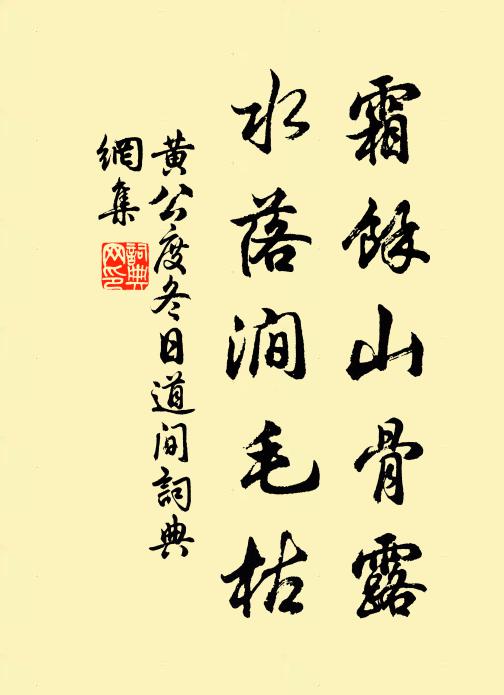 霜餘山骨露
水落澗毛枯
黄公度冬日道间詞典
網集
詞典
网印